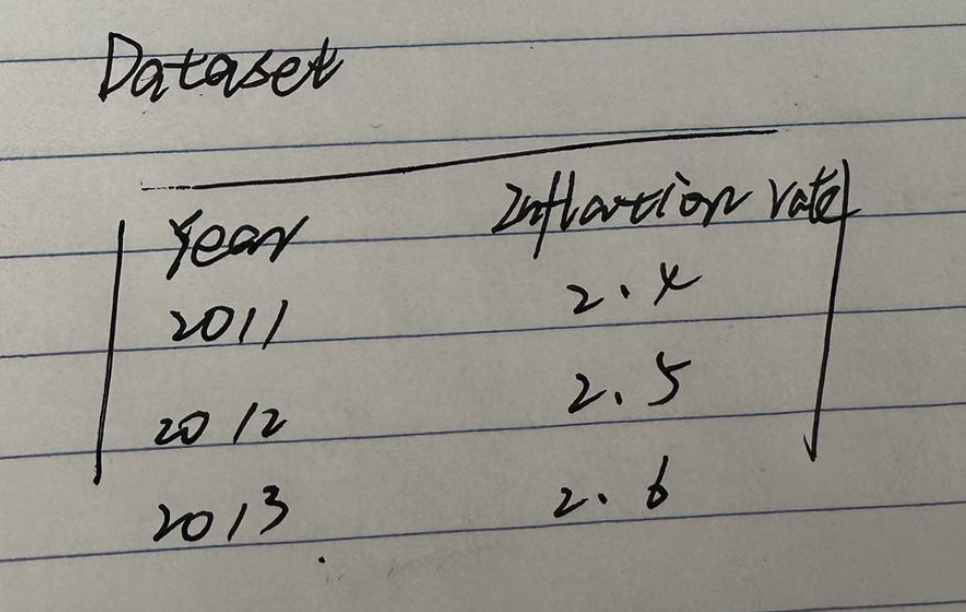 Dataset
Year Inflation rate
2011 2.4
2012 2.5
2013 2.6